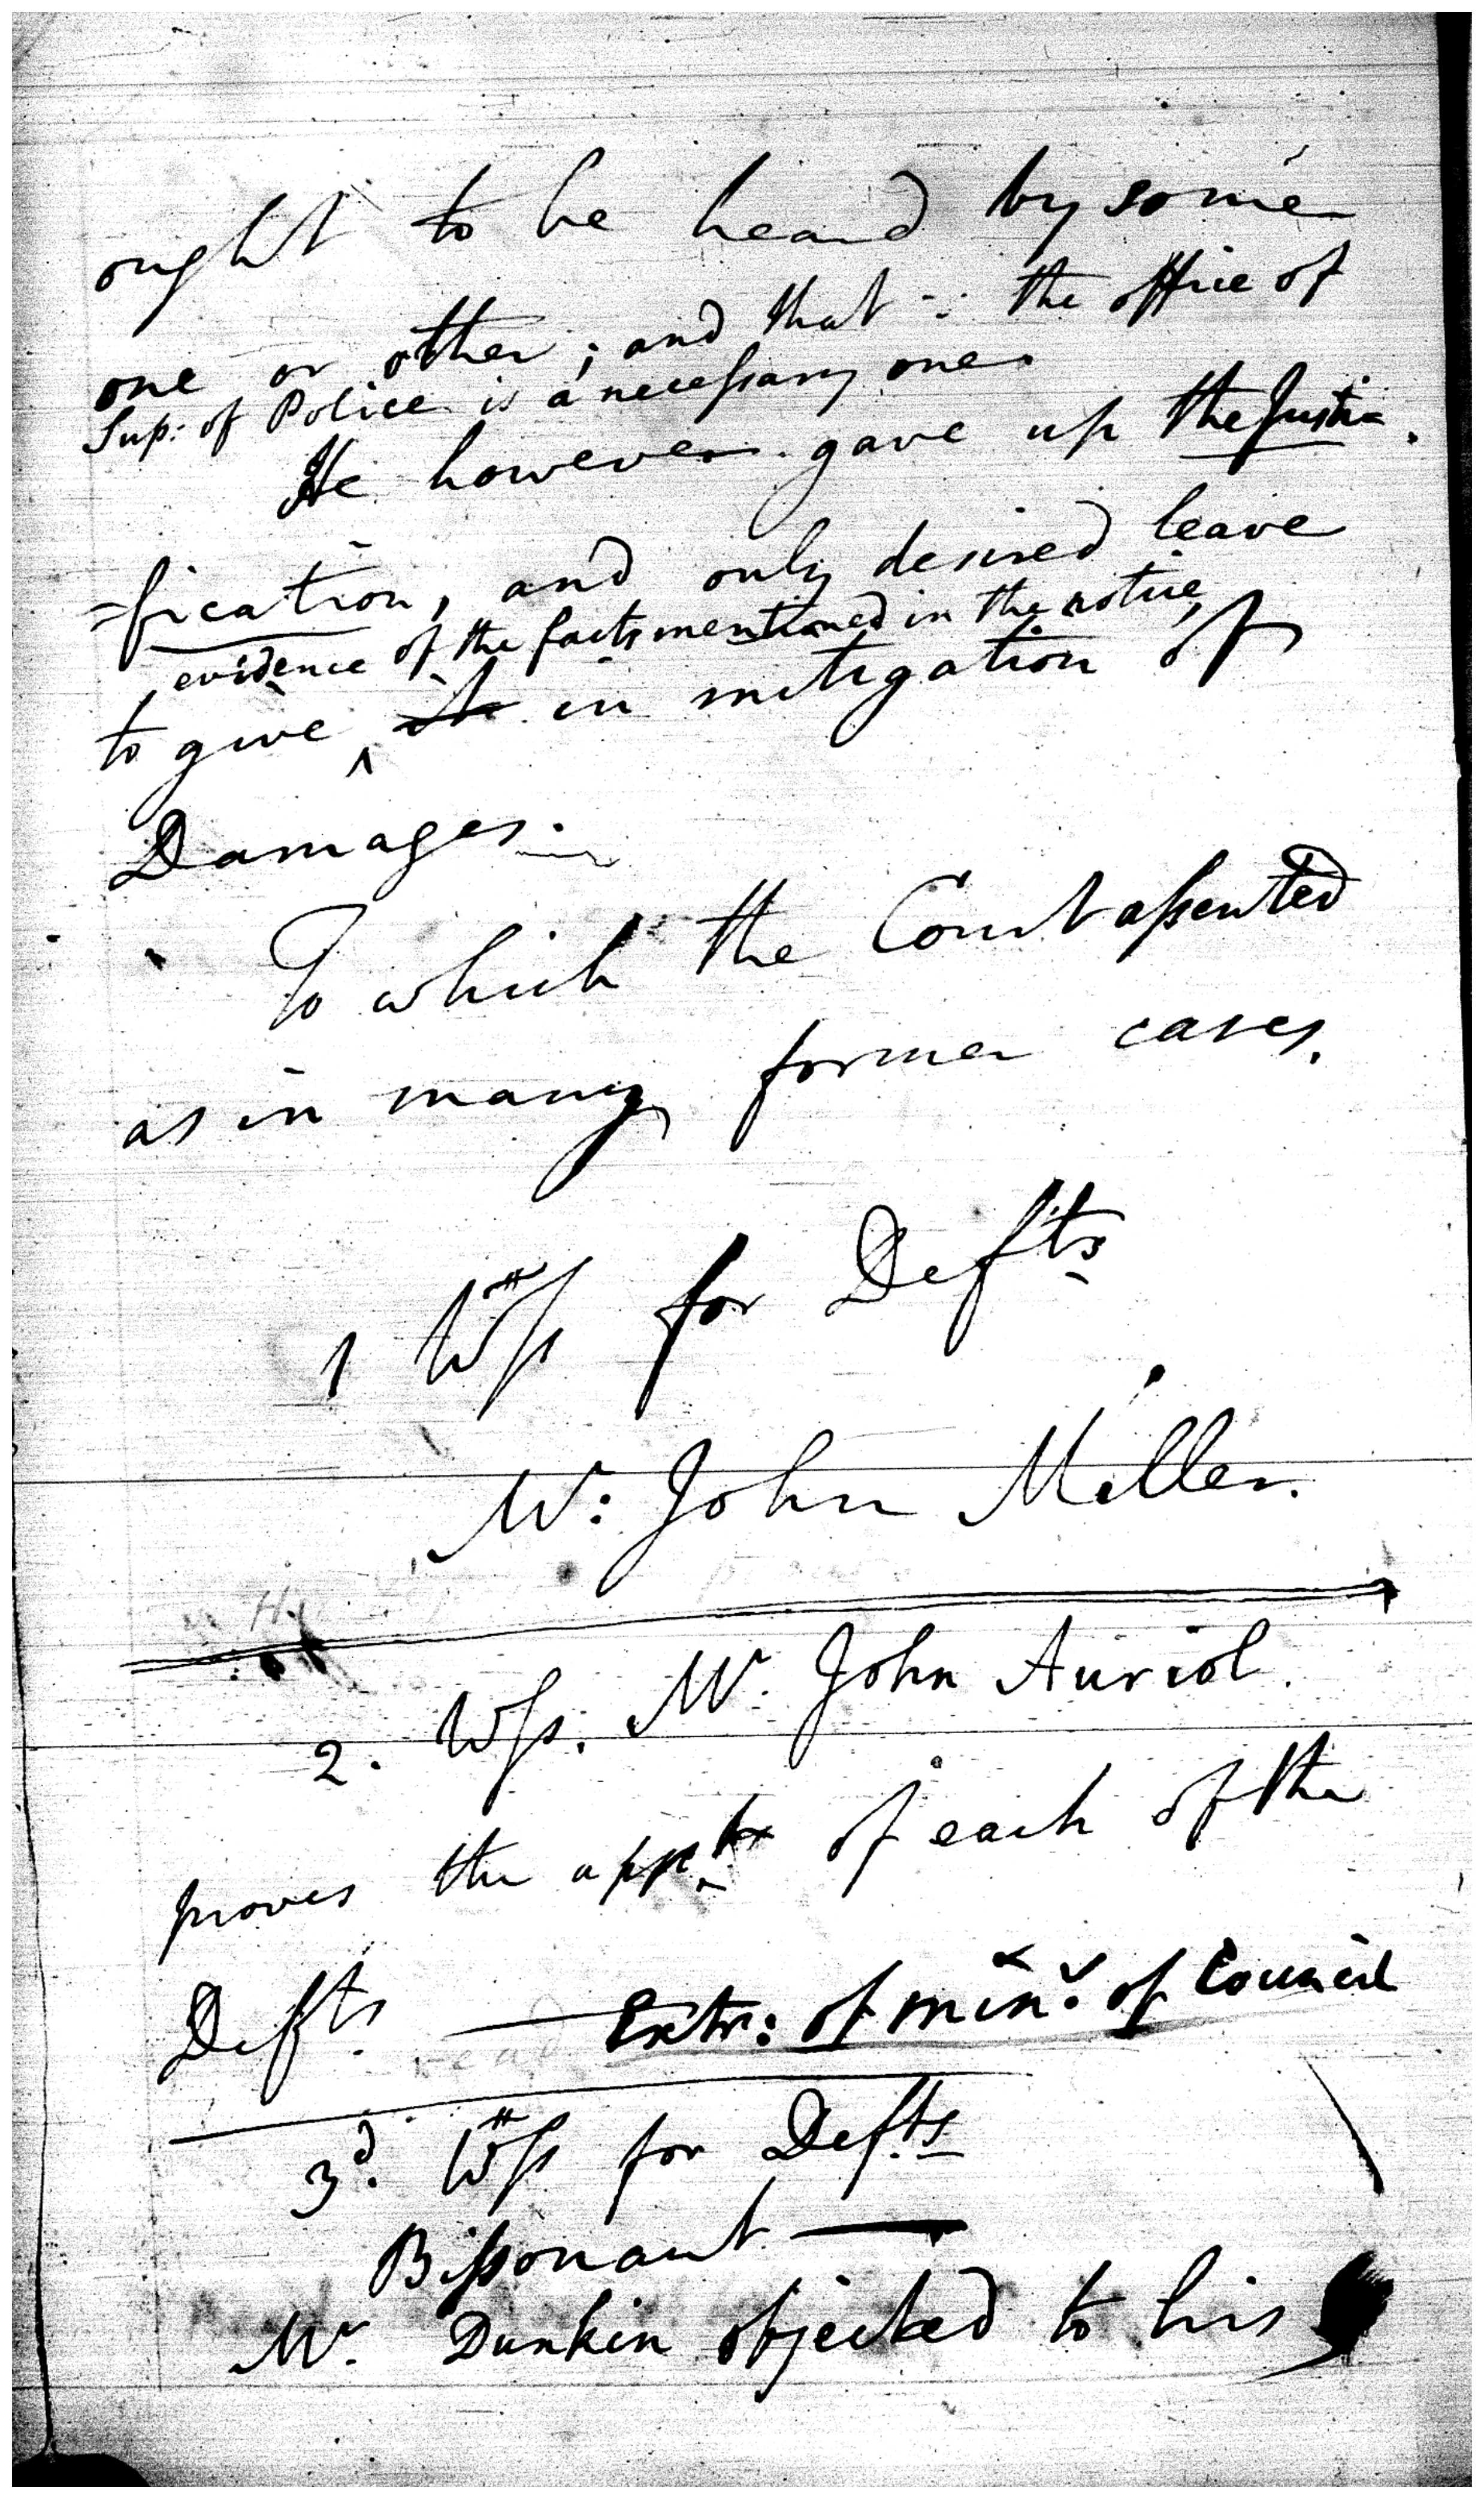 ought to be heard by some
one or other; and that ∵ the office of
Sup: of Police is a necessary one.
He however gave up the Justi
=fication, and only desired leave
evidence of the facts mentioned in the notice,
to give ^ in mitigation of
Damages.
To which the Court assented
as in many former cases.
1 Wss for Defts
Mr: John Miller.
2. Wss. Mr. John Auriol.
proves the appt of each of the
Defts. — Extr: of min: of Council
3d. Wss for Defts
Bissonaut —
Mr. Dunkin objected to his